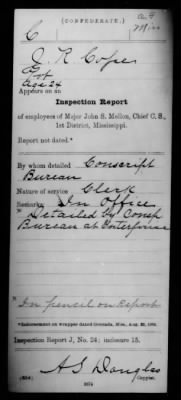 (CONFEDERATE.)
C
J. R. Cofer
Age 24
Appears on an
Inspection Report
of employees of Major John S. Mellon, Chief C. S.,
1st District, Mississippi.
Report not dated.*
By whom detailed Conscript
Bureau
Nature of service Clerk
Remarks: In Office
Detailed by Consp
Bureau at Enterprise
In pencil on Report
*Indorsement on wrapper dated Grenada, Miss., Aug. 22, 1864.
Inspection Report J, No. 24; inclosure 15.
A S Douglas
Copyist.